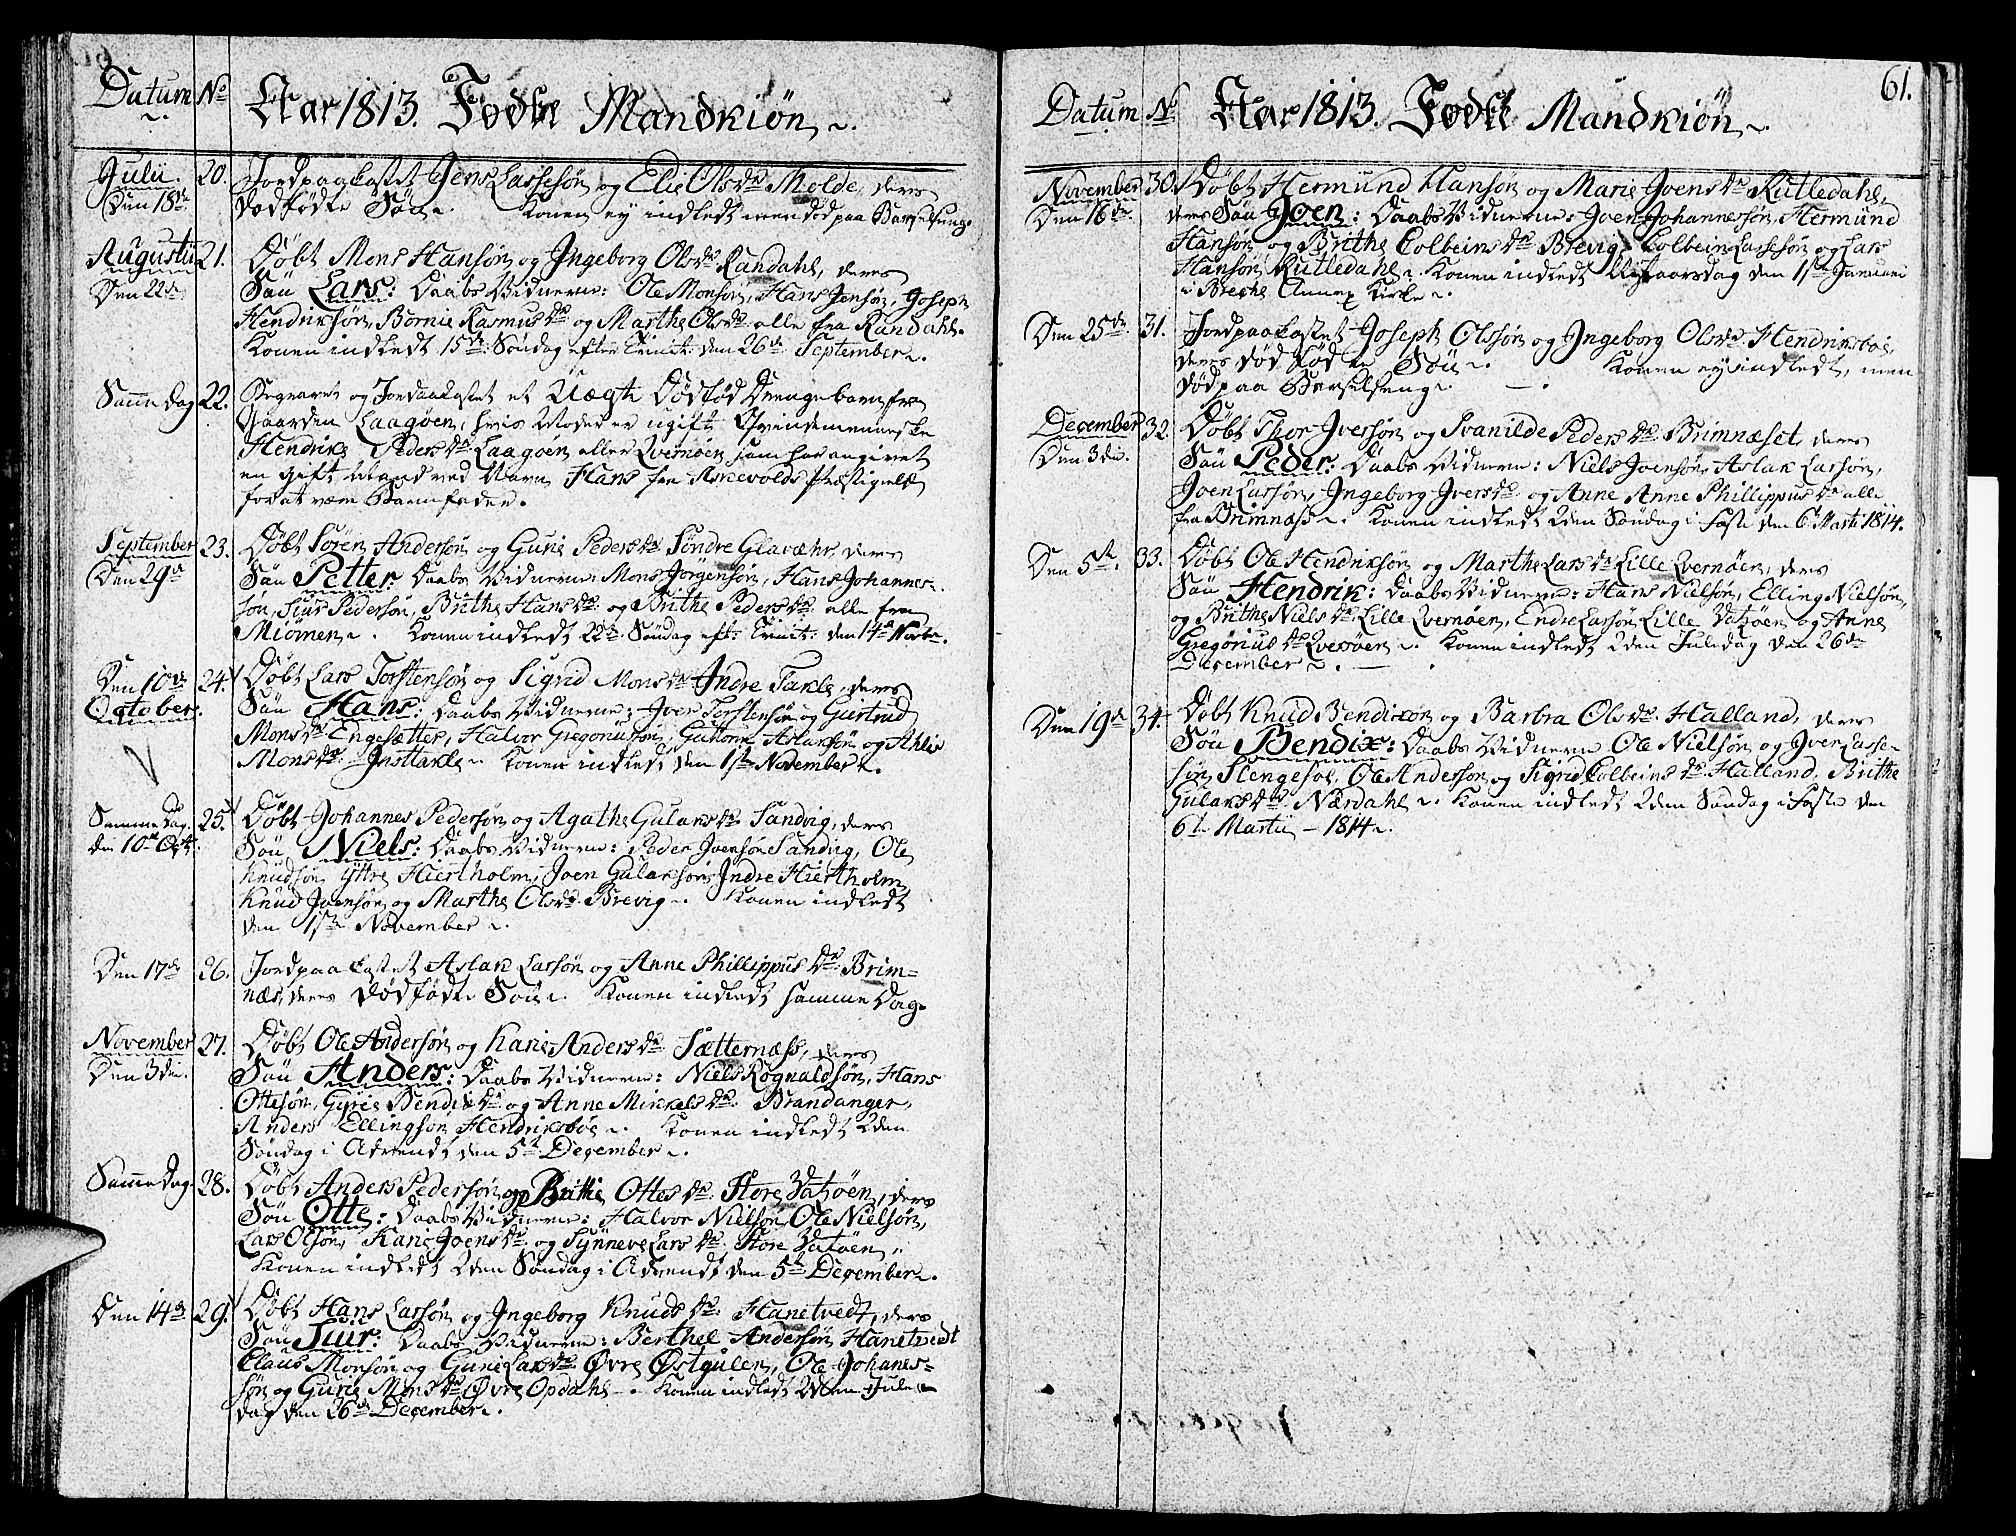 Datum No Aar 1813. Fødte Mandkiøn
Julii. 20. Jordpaakastet Jens Lassesøn og Elie Olsdr Molde, deres
Den 18de dødfødte Søn. Konen ey indledt men død paa Barselseng.
Augustii 21. Døbt Mons Hansøn og Ingeborg Olsdr Randahl, deres
Den 22de Søn Lars: Daabs Vidnerne: Ole Monsøn, Hans Jensøn, Joseph
Hendriksøn, Bornie Rasmusdr og Marthe Olsdr alle fra Randahl.
Konen indledt 15de Søndag efter Trinit: den 26de September.
Samme Dag 22. Begravet og Jordpaakastet et Uægte Dødfød Drengebarn fra
Gaarden Laagøen, hvis Moder er ugift Qvindemenneske
Hendrike Pedersdr Laagøen eller Qvernøen som har angivet
en gift Mand ved Navn Hans fra Askevolds Præstegield
for at være Barnefader.
September 23. Døbt Søren Andersøn og Gurie Pedersdr Søndre Glavær, deres
Den 29de Søn Petter Daabs Vidnerne: Mons Jørgensøn, Hans Johannes-
søn, Siur Pedersøn, Brithe Hansdr og Brithe Pedersdr alle fra
Miømen. Konen indledt 22de Søndag eft: Trinit: den 14de Novbr.
Den 10de 24. Døbt Lars Torstensøn og Sigrid Monsdr Indre Takle, deres
October. Søn Hans: Daabs Vidnerne: Iver Torstensøn og Giertrud
Monsdr Engesætter, Halvor Gregoriusøn, Guttorm Aslaksøn og Ahlis
Monsdr Insttakle. Konen indledt den 1ste November.
Samme Dag 25. Døbt Johannes Pedersøn og Agathe Gulaksdr Sandvig, deres
den 10de Oct. Søn Niels: Daabs Vidnerne: Peder Joensøn Sandvig, Ole
Knudsøn Yttre Hiertholm, Joen Gulaksøn Indre Hiertholm
Knud Joensøn og Marthe Olsdr Brevig. Konen indledt
den 1ste November.
Den 17de 26. Jordpaakastet Aslak Larsøn og Anne Phillippusdr Brim-
næs, deres Dødfødte Søn. Konen indledt samme Dag.
November 27. Døbt Ole Andersøn og Karie Andersdr Sætternæss, deres
Den 3die. Søn Anders: Daabs Vidnerne: Niels Rognaldsøn, Hans
Ottesøn, Gurie Bendixdr og Anne Mikkelsdr Brandanger,
Anders Ellingsøn Hendriksbøe. Konen indledt 2den
Søndag i Advendt den 5te December.
Samme Dag. 28. Døbt Anders Pedersøn og Brithe Ottesdr Store Vatzøen, deres
Søn Otte: Daabs Vidnerne: Halvor Nielsøn, Ole Nielsøn,
Lars Olsøn, Karie Joensdr og Synneve Larsdr Store Vatzøen
Konen indledt 2den Søndag i Advendt den 5te December.
Den 14de 29. Døbt Hans Larsøn og Ingeborg Knudsdr Hanetvedt, deres
Søn Siur: Daabs Vidnerne: Berthel Andersøn Hanetvedt
Claus Monsøn og Gurie Larsdr Øvre Østgulen, Ole Johanes-
søn og Gurie Monsdr Øvre Opdahl. Konen indledt 2den Jule-
dag den 26de December.
61.
Datum No Aar 1813. Fødte Mandkiøn
November 30. Døbt Hermund Hansøn og Marie Joensdr Rutledahl,
Den 18de deres Søn Joen: Daabs Vidnerne: Joen Johannesøn, Hermund
Hansøn og Brithe Colbeinsdr Brevig, Colbein Lassesøn og Lars
Hansøn Rutledahl. Konen indledt Nytaarsdag den 1ste Januarii
i Breche Annex Kirke.
Den 25de 31. Jordpaakastet Joseph Olssøn og Ingeborg Olsdr Hendriksbøe,
deres dødfødte Søn. Konen ey indledt, men
død paa Barselseng.
December 32. Døbt Thor Iversøn og Svanilde Pedersdr Brimnæset, deres
Den 3die. Søn Peder: Daabs Vidnerne: Niels Joensøn, Aslak Larsøn,
Joen Larsøn, Ingeborg Iversdr og Anne Anne Phillippusdr alle
fra Brimnæss. Konen indledt 2den Søndag i Faste den 6te Martii 1814.
Den 5te. 33. Døbt Ole Hendriksøn og Marthe Larsdr Lille Qvernøen, deres
Søn Hendrik: Daabs Vidnerne: Hans Nielsøn, Elling Nielsøn,
og Brithe Nielsdr Lille Qvernøen, Endre Larsøn Lille Vatzøen og Anne
Gregøriusdr Qverøen. Konen indledt 2den Juledag den 26de
December.
Den 19de 34. Døbt Knud Bendixøn og Barbra Olsdr Halland, deres
Søn Bendix: Daabs Vidnerne Ole Nielsøn og Iver Lasse-
søn Slengesøe, Ole Andersøn og Sigrid Colbeinsdr Halland, Brithe
Gulaksdr Nærdahl. Konen indledt 2den Søndag i Faste den
6te Martii - 1814.